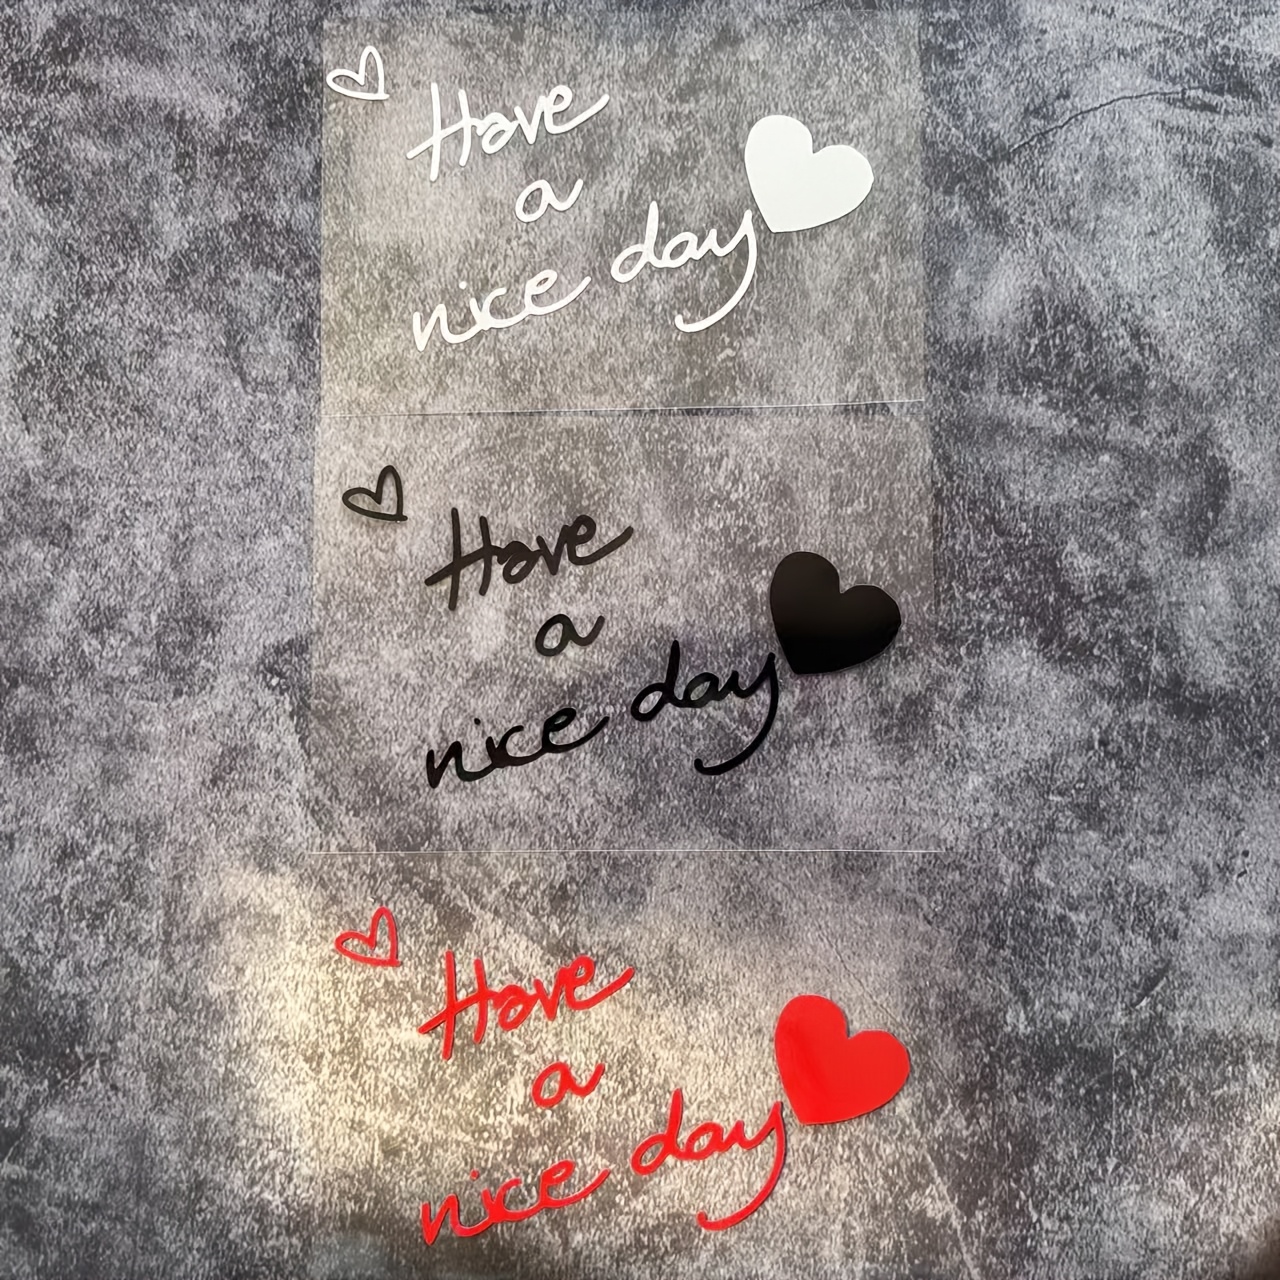 Have
a
nice day
Have
a
nice day
Have
a
nice day